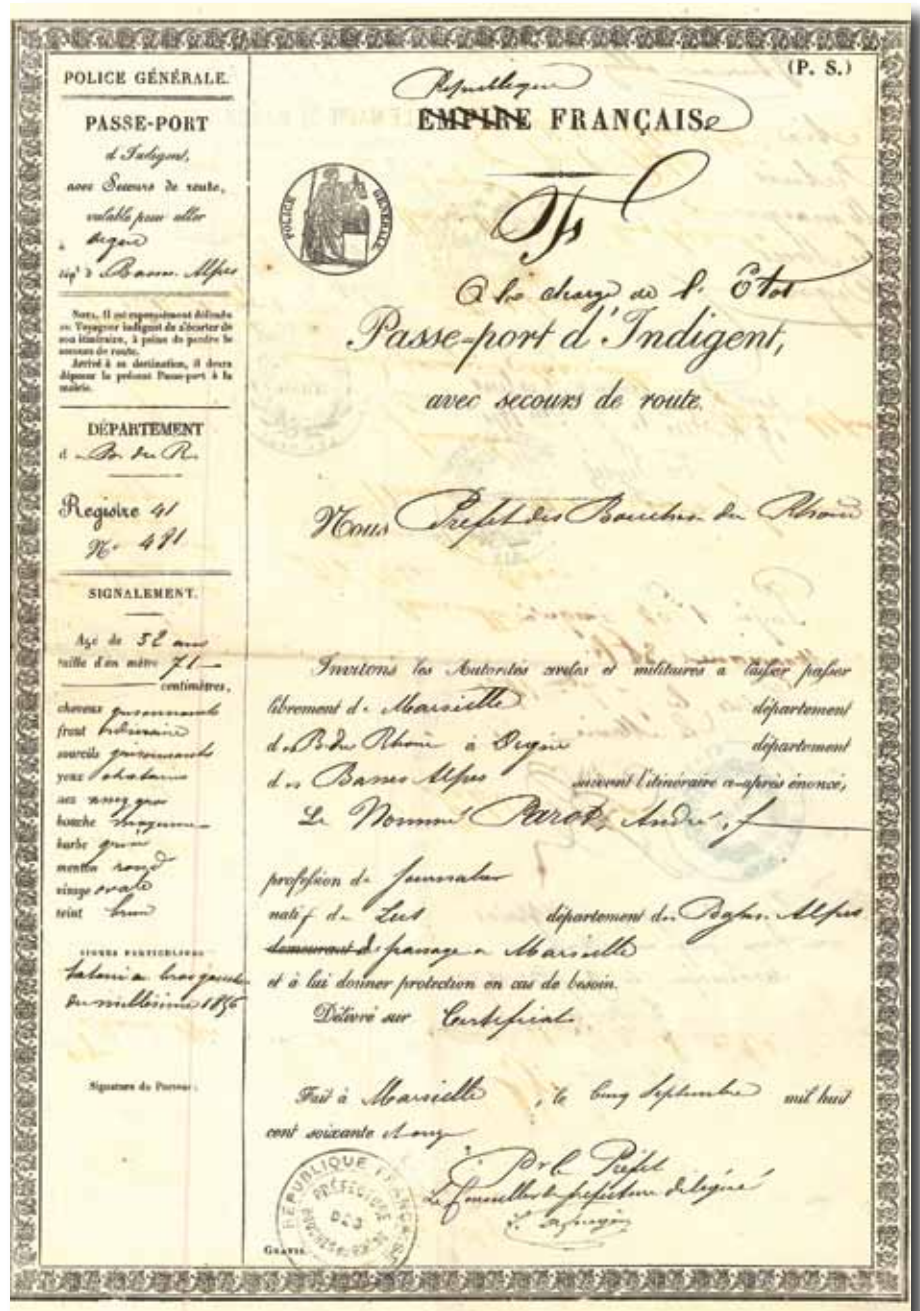 POLICE GÉNÉRALE.
PASSE-PORT
d'Indigent,
avec Secours de route,
valable pour aller
à Digne
dép^t d Basses Alpes
NOTA. Il est expressément défendu
au Voyageur indigent de s'écarter de
son itinéraire, à peine de perdre le
secours de route.
Arrivé à sa destination, il devra
déposer le présent Passe-port à la
mairie.
DÉPARTEMENT
d B. du R.
Registre 41
N° 481
SIGNALEMENT.
Agé de 52 ans
taille d'un mètre 71
centimètres,
cheveux grisonnants
front ordinaire
sourcils grisonnants
yeux chatains
nez assez gros
bouche moyenne
barbe grise
menton rond
visage ovale
teint brun
SIGNES PARTICULIERS
bras gauche
du millésime 1856
Signature du Porteur:
(P. S.)
République
EMPIRE FRANÇAISe
POLICE GÉNÉRALE
A la charge de l'Etat
Passe-port d'Indigent,
avec secours de route.
Nous Préfet des Bouches du Rhône
Invitons les Autorités civiles et militaires à laisser passer
librement de Marseille département
des B. du Rhône à Digne département
des Basses Alpes suivant l'itinéraire ci-après énoncé,
Le Nommé Parot, André,
profession de Journalier
natif de Lus département des Basses Alpes
demeurant de passage à Marseille
et à lui donner protection en cas de besoin.
Délivré sur Certificat
Fait à Marseille, le Cinq Septembre mil huit
cent soixante et onze
P^r le Préfet
Le Conseiller de préfecture délégué
RÉPUBLIQUE FRANÇAISE
PRÉFECTURE
DES
GRATIS.